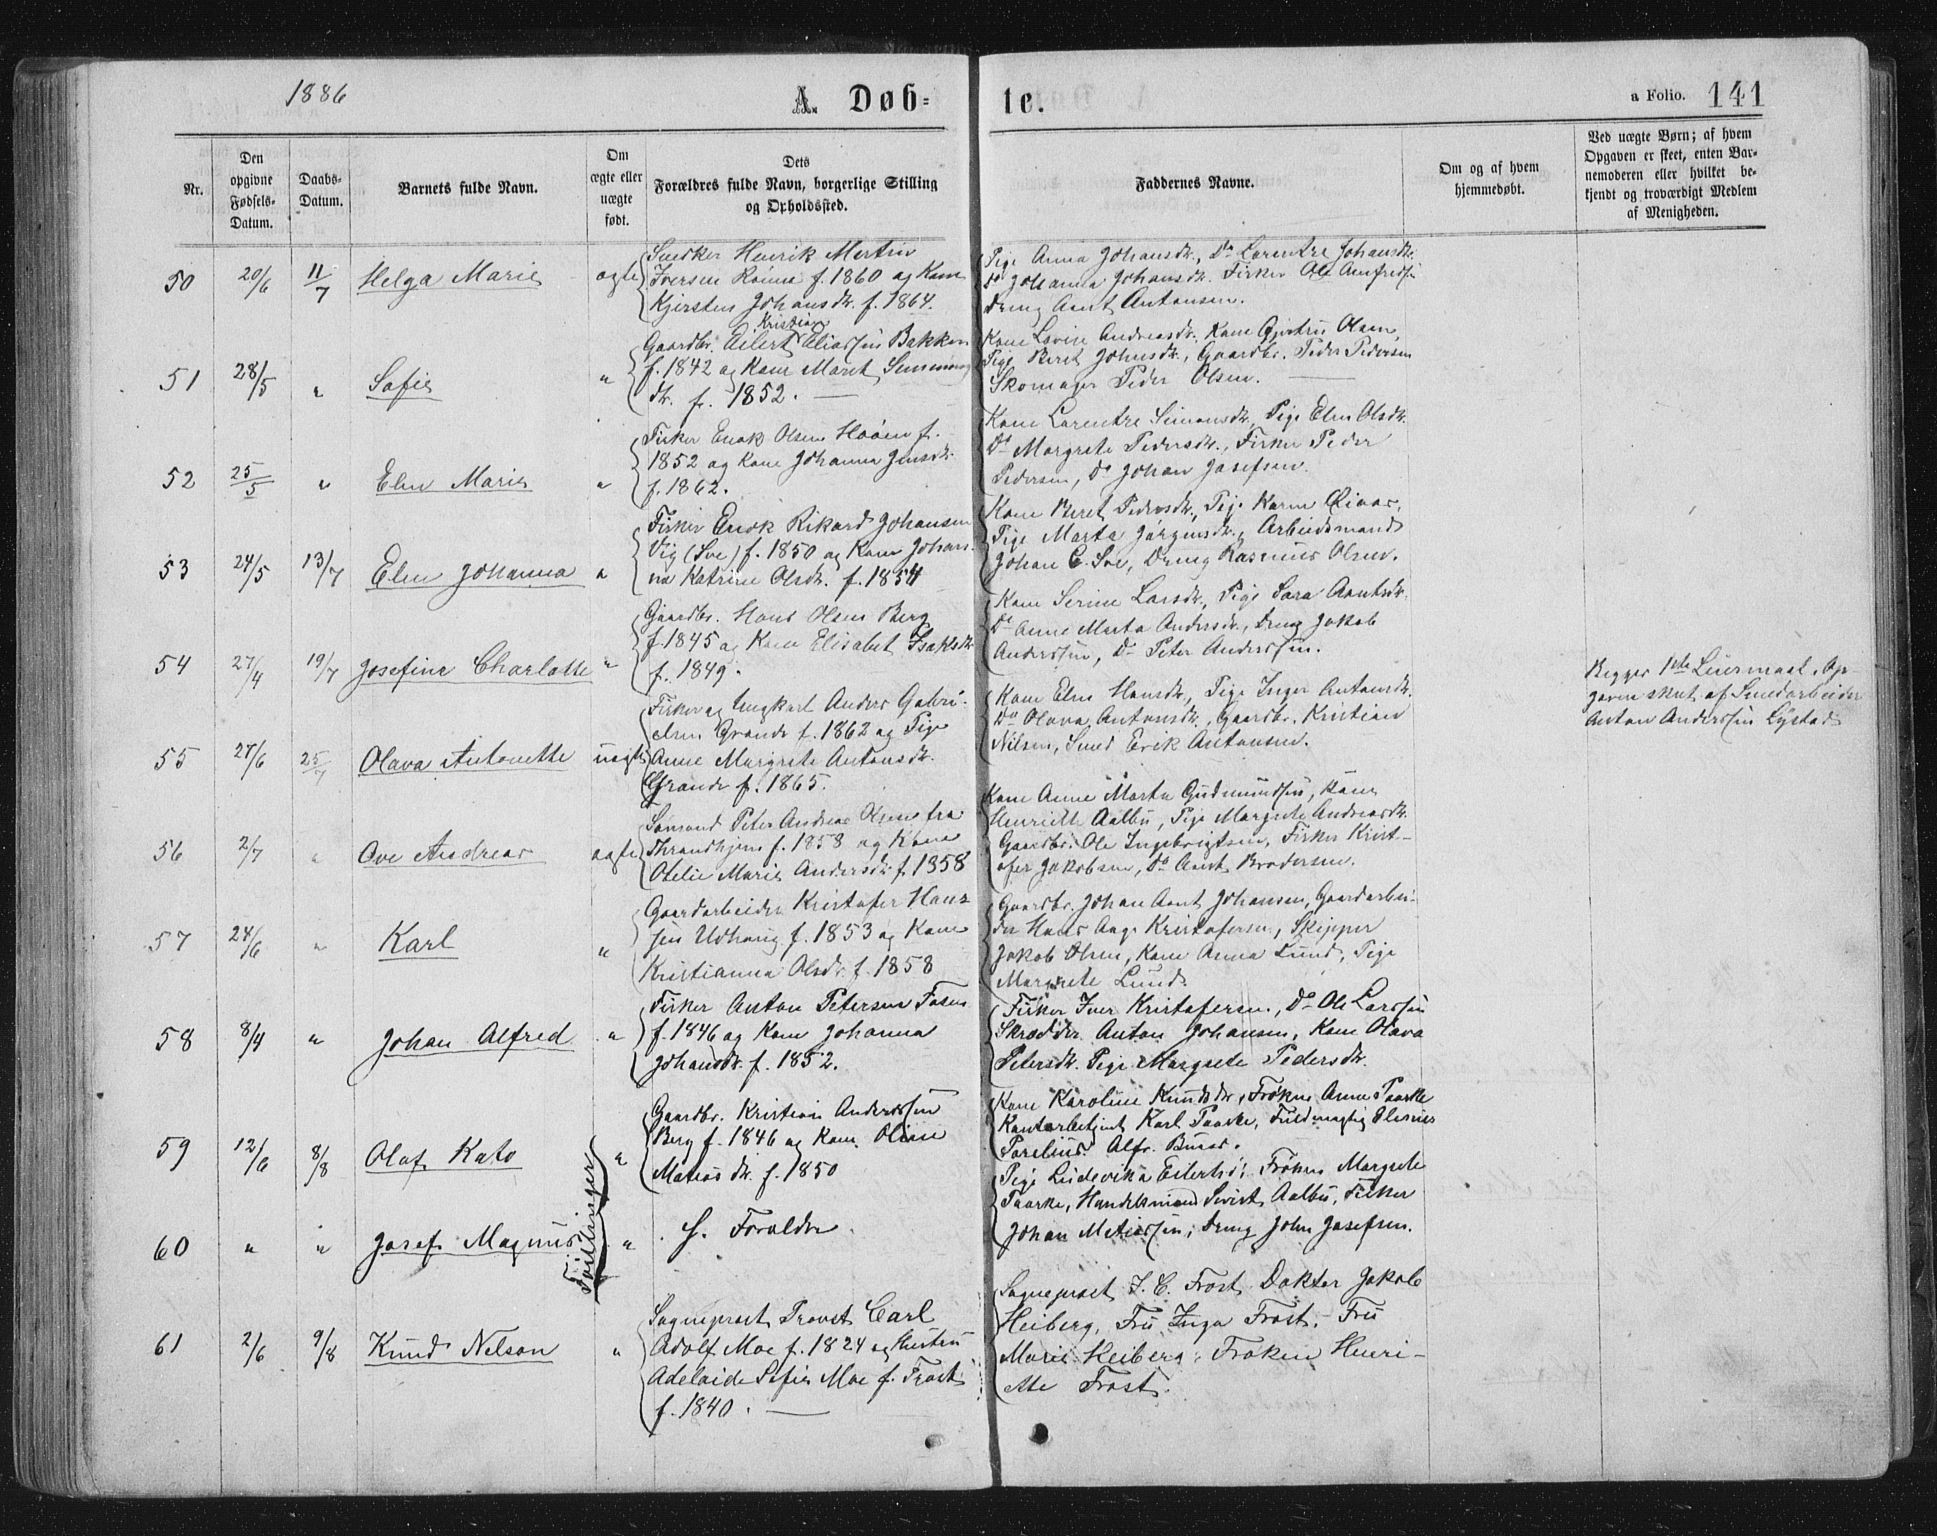 1886
A. Døb-
te.
a Folio. 141
Nr.
Den opgivne Fødsels-Datum.
Daabs-Datum.
Barnets fulde Navn.
Om ægte eller uægte født.
Dets Forældres fulde Navn, borgerlige Stilling og Opholdssted.
Faddernes Navne.
Om og af hvem hjemmedøbt.
Ved uægte Børn; af hvem Opgaven er skeet, enten Barnemoderen eller hvilket bekjendt og troværdigt Medlem af Menigheden.
50 20/6 11/7 Helga Marie ægte
Snedker Henrik Martin
Iversen f. 1860 og Kone
Kjersten Johansdtr. f. 1864.
Pige Anna Johansdtr., Do Lorentze Johansdtr.
Do Johanna Johansdtr. Fisker Ole Arnfredsen
Dreng Arnt Antonsen.
51 28/5 " Sofie "
Kristian
Gaardbr. Eilert Eliassen Bakken
f. 1842 og Kone Maret Simons
dtr. f. 1852.
Kone Lovise Andreasdtr. Kone Gjertru Olsen,
Pige Beret Johnsdtr., Gaardbr. Peder Pedersen
Skomager Peder Olsen.
52 25/5 " Elen Marie "
Fisker Enok Olsen f.
1852 og Kone Johanna Jensdtr.
f. 1862.
Kone Lorentze Simonsdtr., Pige Elen Olsdtr.
Do Margrete Pedersdtr., Fisker Peder
Pedersen, Do Johan Josefsen.
53 24/5 13/7 Elen Johanna "
Fisker Enok Rikard Johansen
Vig (Soe) f. 1850 og Kone Johan-
na Katrine Olsdtr. f. 1854
Kone Beret Pedersdtr., Pige Karen
Pige Marta Jørgensdtr., Arbeidsmand
Johan E. Soe, Dreng Rasmus Olsen.
54 27/4 19/7 Josefine Charlotte "
Gaardbr. Hans Olsen Berg
f. 1845 og Kone Elisabet Isaksdtr.
f. 1849.
Kone Serine Larsdtr., Pige Sara Arntsdtr.
Do Anne Marta Andersdtr., Dreng Jakob
Anderssen, Do Peter Anderssen.
55 27/6 25/7 Olava Antonette uægte
Fisker og Ungkarl Anders Gabri-
elsen Grande f. 1862 og Pige
Anne Margrete Antonsdtr.
Grande f. 1865.
Kone Elen Hansdtr., Pige Inger Antonsdtr.
Do Olava Antonsdtr., Gaardbr. Kristian
Nilsen, Smed Erik Antonsen.
Begges 1ste Leiermaal. Op-
gaven skeet af Smedarbeider
Anton Anderssen Lysted
56 2/7 " Ove Andreas ægte
Sømand Peter Andreas Olsen fra
Throndhjem f. 1858 og Kone
Otelie Marie Andersdtr. f. 1858
Kone Anne Marta Gudmundsen, Kone
Henriette Aalbu, Pige Margrete Andreasdtr.
Gaardbr. Ole Ingebrigtsen, Fisker Krist-
ofer Jakobsen, Do Arnt Brodersen.
57 24/6 " Karl "
Gaardarbeider Kristofer Hans-
sen Udhaug f. 1853 og Kone
Kristianna Olsdtr. f. 1858
Gaardbr. Johan Arnt Johansen, Gaardarbei-
der Hans Aage Kristofersen, Skipper
Jakob Olsen, Kone Anna Lund, Pige
Margrete Lund.
58 8/4 " Johan Alfred "
Fisker Anton Petersen
f. 1846 og Kone Johanna
Johansdtr. f. 1852.
Fisker Iver Kristofersen, Do Ole Larssen
Skrædder Anton Johansen, Kone Olava
Petersdtr. Pige Margrete Pedersdtr.
59 12/6 8/8 Olaf Kato "
Tvillinger
Gaardbr. Kristian Anderssen
Berg f. 1846 og Kone Oline
Matiasdtr. f. 1850
Kone Karoline Knudsdtr., Frøken Anne Paaske
Karl Paaske, Fuldmægtig
Alfr. Busch.
60 " " Josef Magnus "
f. Forældre
Pige Ludevika, Frøken Margrete
Paaske, Handelsmand Sivert Aalbu, Fisker
Johan Matiassen, Dreng John Josefsen.
61 2/6 9/8 Knud Nelson "
Sogneprest Provst Carl
Adolf Moe f. 1824 og Hustru
Adelaide Sofie Moe f. Frost
f. 1840.
Sogneprest J. C. Frost Doktor Jakob
Heiberg, Fru Inga Frost, Fru
Marie Heiberg, Frøken Henri-
ette Frost.